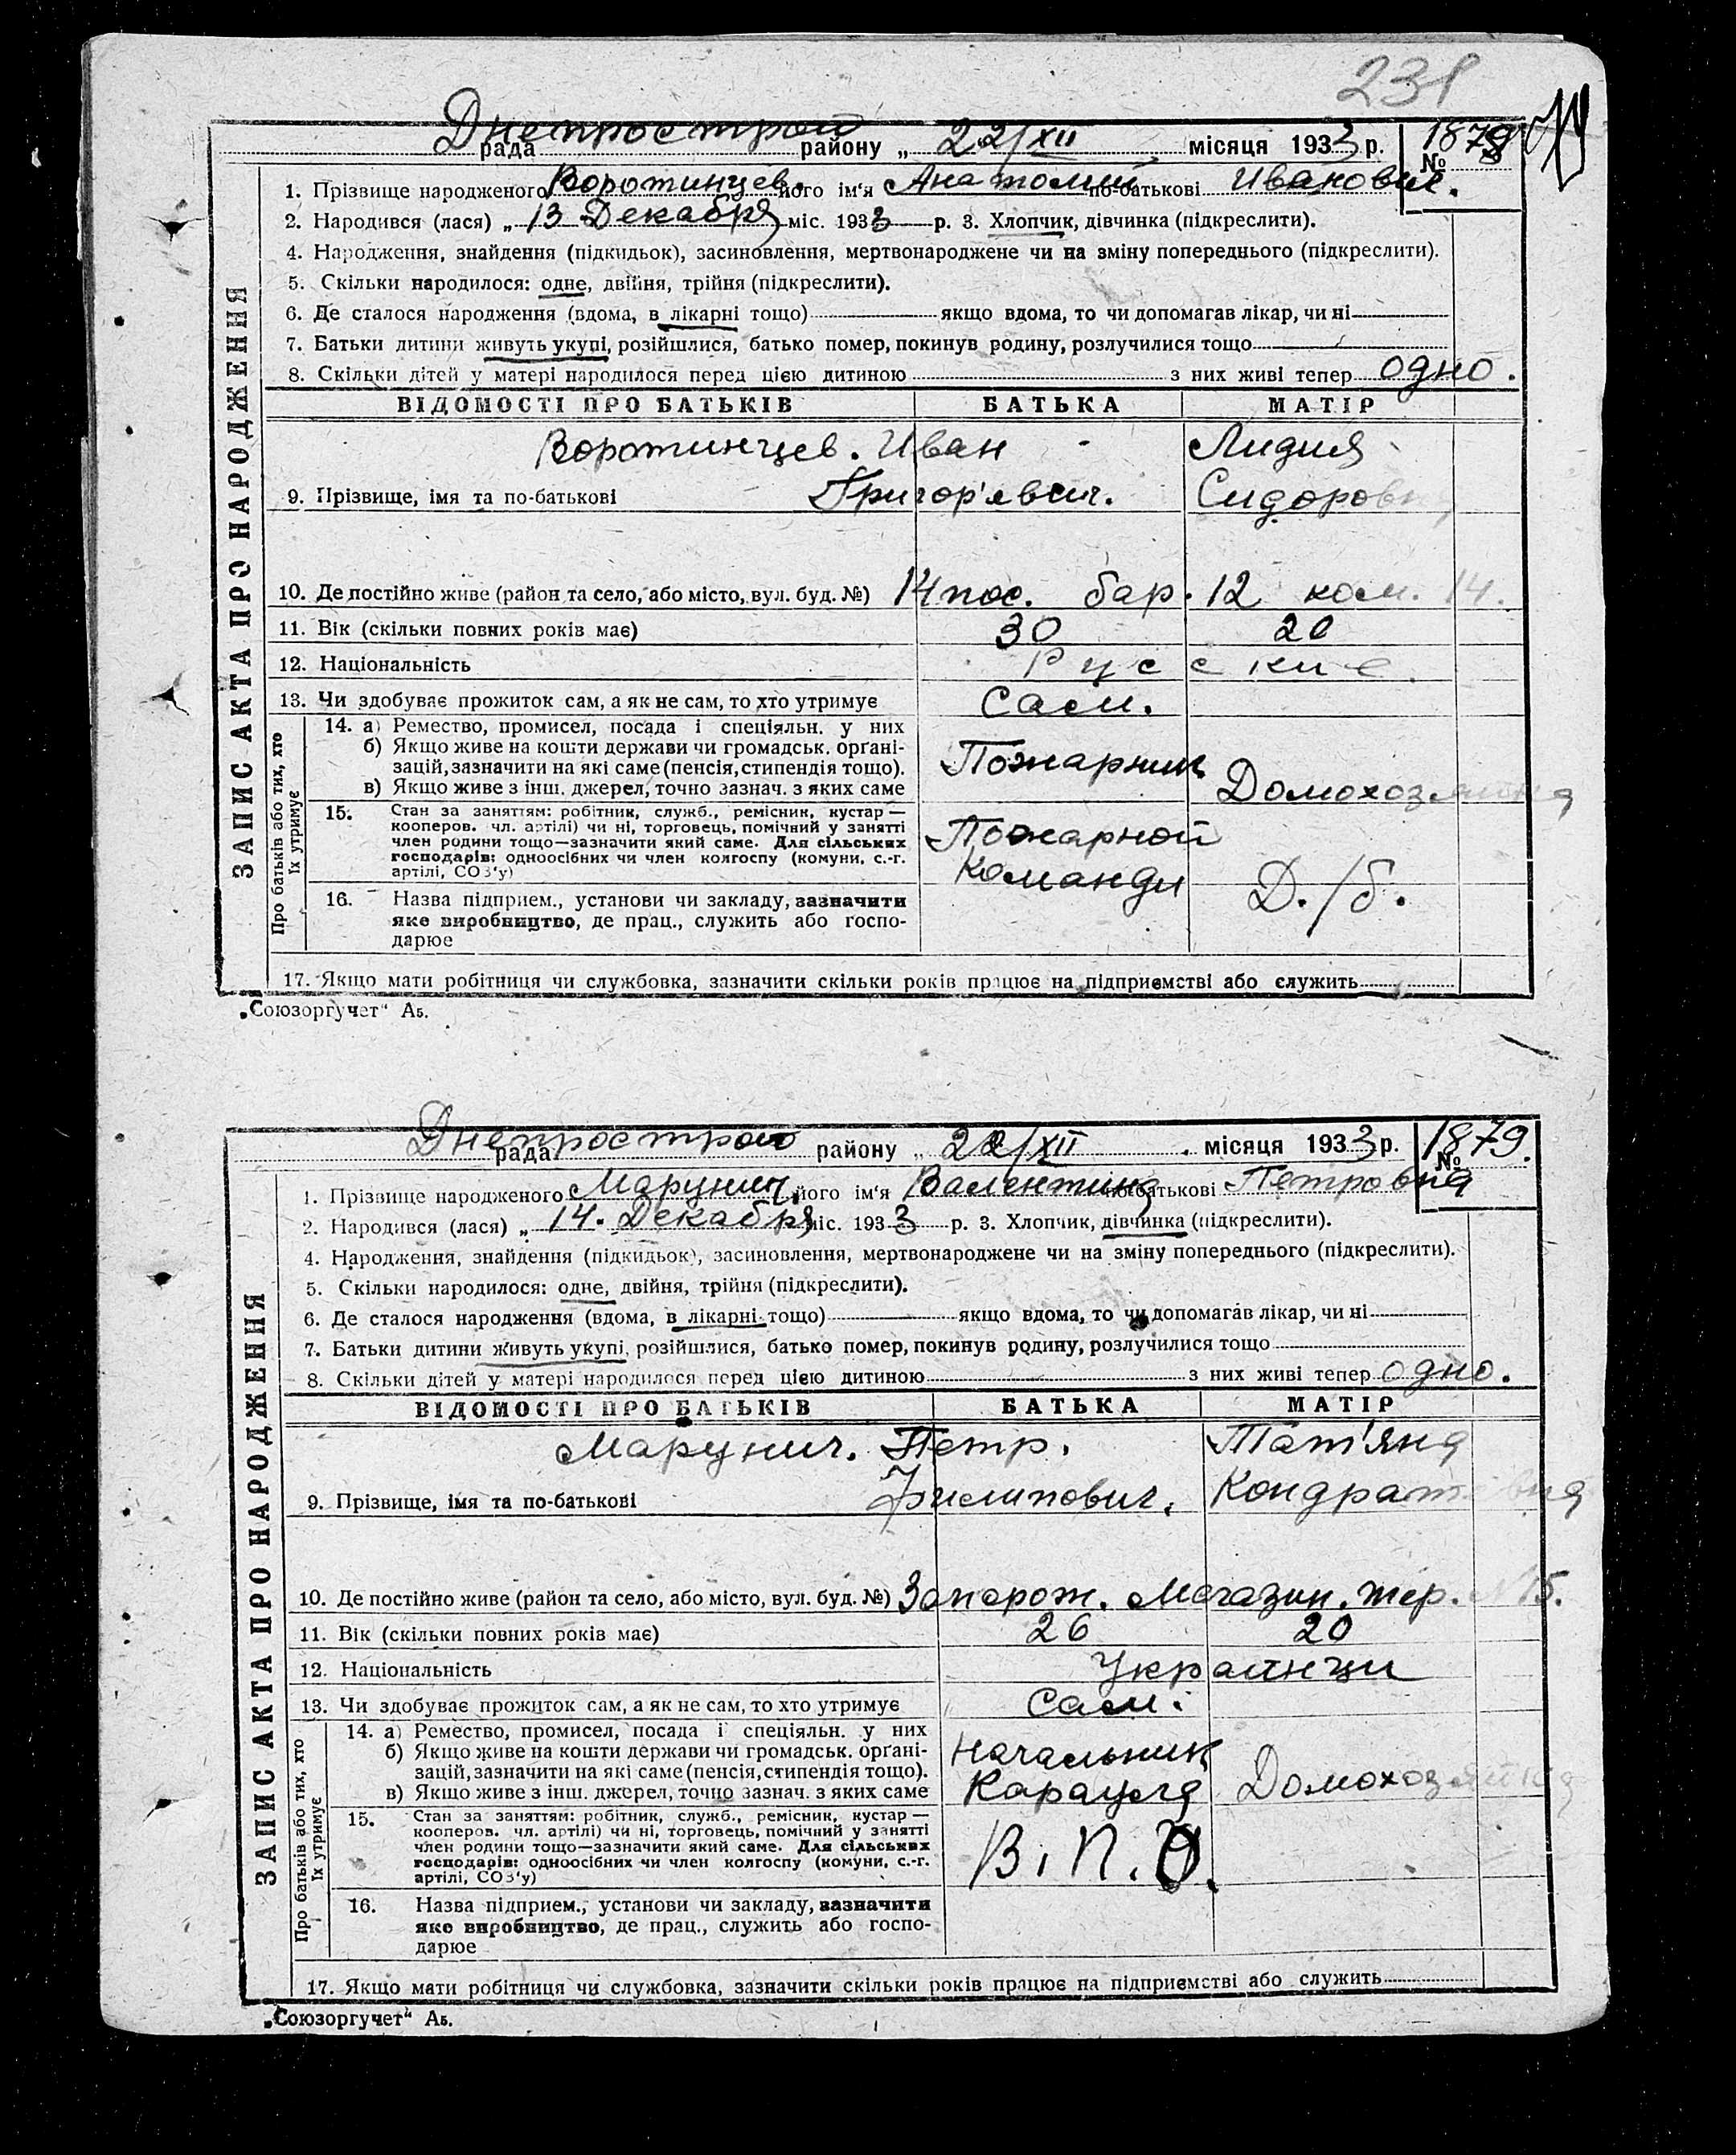 231
Днепрострой
рада району „ 22/XII місяця 1933 р. №
1. Прізвище народженого Воротинцев. його ім'я Анатолий по-батькові Иванович.
2. Народився (лася) „ 13 Декабря міс. 1933 р. 3. Хлопчик, дівчинка (підкреслити).
4. Народження, знайдення (підкидьок), засиновлення, мертвонароджене чи на зміну попереднього (підкреслити).
5. Скільки народилося: одне, двійня, трійня (підкреслити).
6. Де сталося народження (вдома, в лікарні тощо) якщо вдома, то чи допомагав лікар, чи ні
7. Батьки дитини живуть укупі, розійшлися, батько помер, покинув родину, розлучилися тощо
8. Скільки дітей у матері народилося перед цією дитиною з них живі тепер одно.
ЗАПИС АКТА ПРО НАРОДЖЕННЯ
ВІДОМОСТІ ПРО БАТЬКІВ БАТЬКА МАТІР
Воротинцев. Иван Лидия
9. Прізвище, імя та по-батькові Григор'евич. Сидоровна
10. Де постійно живе (район та село, або місто, вул. буд. №) 14 пос. бар. 12 ком. 14.
11. Вік (скільки повних років має) 30 20
12. Національність Русские
13. Чи здобуває прожиток сам, а як не сам, то хто утримує Сам.
Про батьків або тих, хто їх утримує
14. а) Ремество, промисел, посада і спеціяльн. у них
б) Якщо живе на кошти держави чи громадськ. орґані-
зацій, зазначити на які саме (пенсія, стипендія тощо).
в) Якщо живе з інш. джерел, точно зазнач. з яких саме
Пожарник Домохозяйка
15. Стан за заняттям: робітник, служб., ремісник, кустар —
кооперов. чл. артілі) чи ні, торговець, помічний у занятті
член родини тощо—зазначити який саме. Для сільських
господарів: одноосібних чи член колгоспу (комуни, с.-г.
артілі, СОЗ'у)
Пожарной
Команды Д./б.
16. Назва підприєм., установи чи закладу, зазначити
яке виробництво, де прац., служить або госпо-
дарює
17. Якщо мати робітниця чи службовка, зазначити скільки років працює на підприємстві або служить
„Союзоргучет“ Аб.
Днепрострой
рада району „ 22/XII місяця 1933 р. № 1879.
1. Прізвище народженого Марунич. його ім'я Валентина по-батькові Петровна
2. Народився (лася) „ 14. Декабря міс. 1933 р. 3. Хлопчик, дівчинка (підкреслити).
4. Народження, знайдення (підкидьок), засиновлення, мертвонароджене чи на зміну попереднього (підкреслити).
5. Скільки народилося: одне, двійня, трійня (підкреслити).
6. Де сталося народження (вдома, в лікарні тощо) якщо вдома, то чи допомагав лікар, чи ні
7. Батьки дитини живуть укупі, розійшлися, батько помер, покинув родину, розлучилися тощо
8. Скільки дітей у матері народилося перед цією дитиною з них живі тепер одно.
ЗАПИС АКТА ПРО НАРОДЖЕННЯ
ВІДОМОСТІ ПРО БАТЬКІВ БАТЬКА МАТІР
Марунич. Петр. Тат'яна
9. Прізвище, імя та по-батькові Филипович. Кондратівна
10. Де постійно живе (район та село, або місто, вул. буд. №) Запорож. Магазин. тер. 15.
11. Вік (скільки повних років має) 26 20
12. Національність Украинци
13. Чи здобуває прожиток сам, а як не сам, то хто утримує Сам.
Про батьків або тих, хто їх утримує
14. а) Ремество, промисел, посада і спеціяльн. у них
б) Якщо живе на кошти держави чи громадськ. орґані-
зацій, зазначити на які саме (пенсія, стипендія тощо).
в) Якщо живе з інш. джерел, точно зазнач. з яких саме
Начальник
Караула Домохозяйка
15. Стан за заняттям: робітник, служб., ремісник, кустар —
кооперов. чл. артілі) чи ні, торговець, помічний у занятті
член родини тощо—зазначити який саме. Для сільських
господарів: одноосібних чи член колгоспу (комуни, с.-г.
артілі, СОЗ'у)
В.П.О.
16. Назва підприєм., установи чи закладу, зазначити
яке виробництво, де прац., служить або госпо-
дарює
17. Якщо мати робітниця чи службовка, зазначити скільки років працює на підприємстві або служить
„Союзоргучет“ Аб.